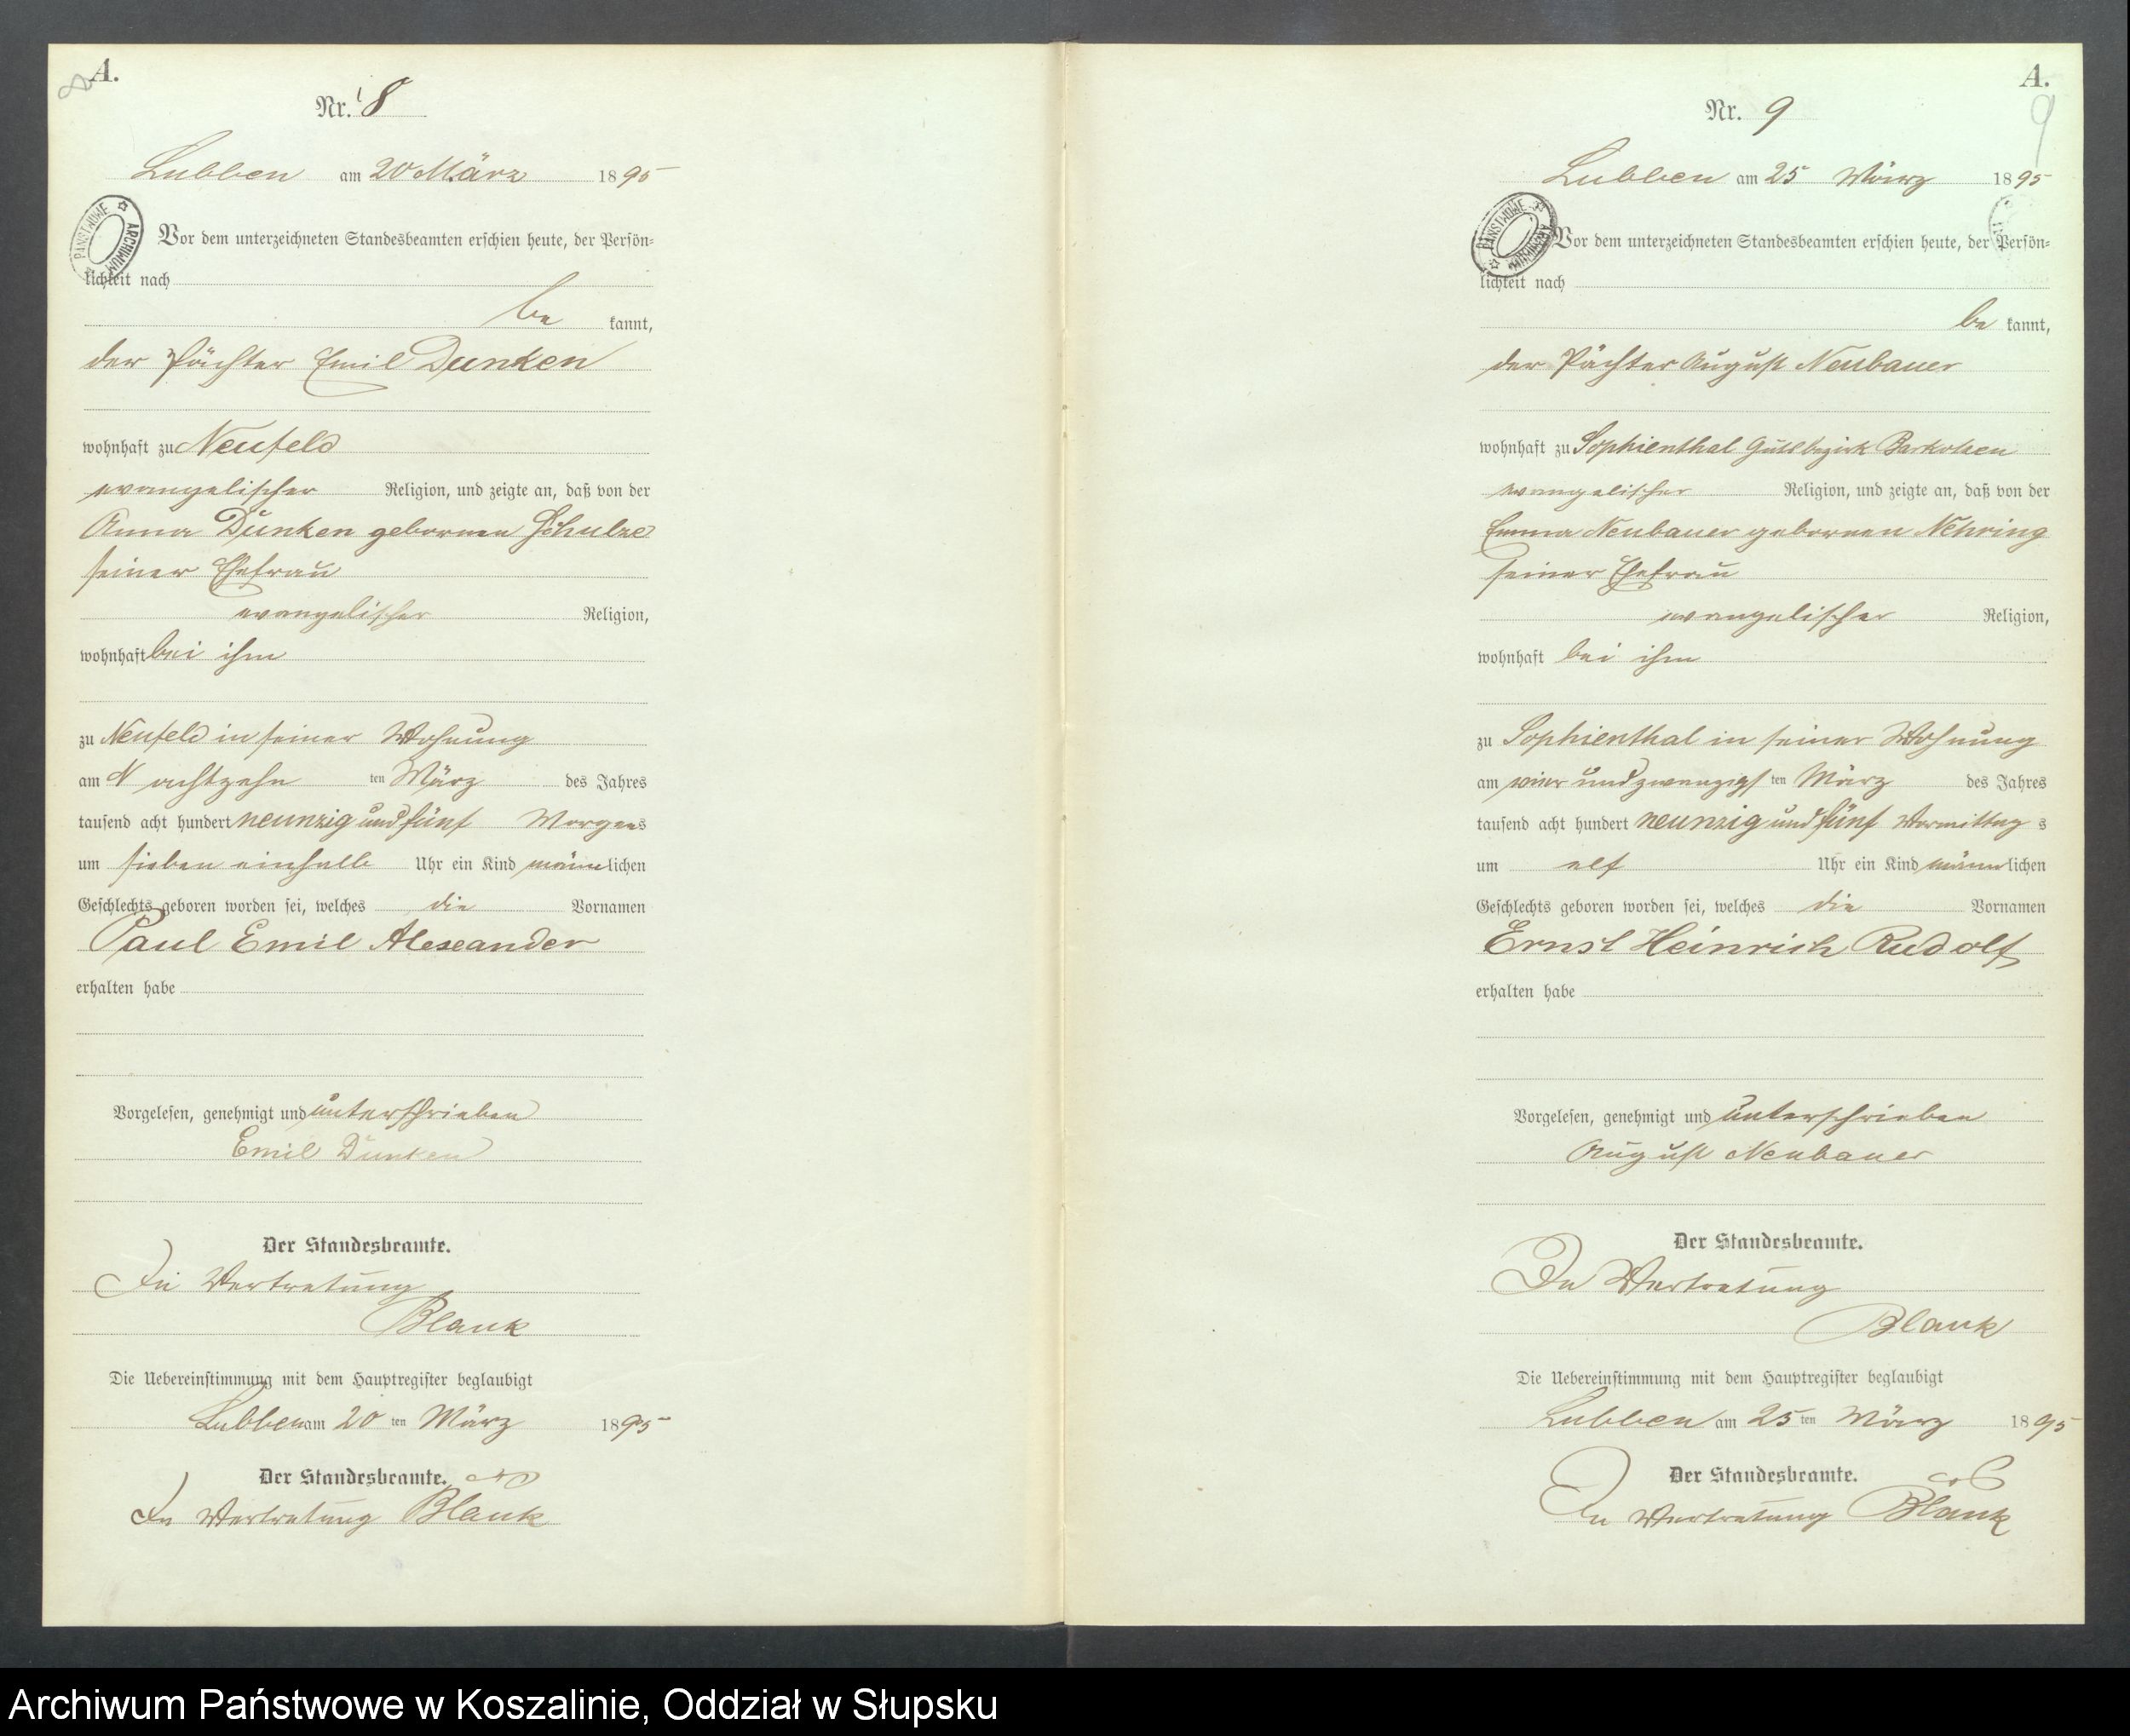 A.
8
Nr. 8
Lubben am 20 März 1895
PAŃSTWOWE ARCHIWUM
Vor dem unterzeichneten Standesbeamten erschien heute, der Persön=
lichkeit nach
be kannt,
der Pächter Emil Dunken
wohnhaft zu Neufeld
evangelischer Religion, und zeigte an, daß von der
Anna Dunken gebornen Schulze
seiner Ehefrau
evangelischer Religion,
wohnhaft bei ihm
zu Neufeld in seiner Wohnung
am achtzehn ten März des Jahres
tausend acht hundert neunzig und fünf Morgens
um sieben einhalb Uhr ein Kind männlichen
Geschlechts geboren worden sei, welches die Vornamen
Paul Emil Alexander
erhalten habe
Vorgelesen, genehmigt und unterschrieben
Emil Dunken
Der Standesbeamte.
In Vertretung
Blank
Die Uebereinstimmung mit dem Hauptregister beglaubigt
Lubben am 20 ten März 1895
Der Standesbeamte.
In Vertretung Blank
A.
9
Nr. 9
Lubben am 25 März 1895
PAŃSTWOWE ARCHIWUM
Vor dem unterzeichneten Standesbeamten erschien heute, der Persön=
lichkeit nach
be kannt,
der Pächter August Neubauer
wohnhaft zu Sophienthal Gutsbezirk Barkotzen
evangelischer Religion, und zeigte an, daß von der
Emma Neubauer gebornen Nehring
seiner Ehefrau
evangelischer Religion,
wohnhaft bei ihm
zu Sophienthal in seiner Wohnung
am vier und zwanzigs ten März des Jahres
tausend acht hundert neunzig und fünf Vormittag s
um elf Uhr ein Kind männlichen
Geschlechts geboren worden sei, welches die Vornamen
Ernst Heinrich Rudolf
erhalten habe
Vorgelesen, genehmigt und unterschrieben
August Neubauer
Der Standesbeamte.
In Vertretung
Blank
Die Uebereinstimmung mit dem Hauptregister beglaubigt
Lubben am 25 ten März 1895
Der Standesbeamte.
In Vertretung Blank
Archiwum Państwowe w Koszalinie, Oddział w Słupsku